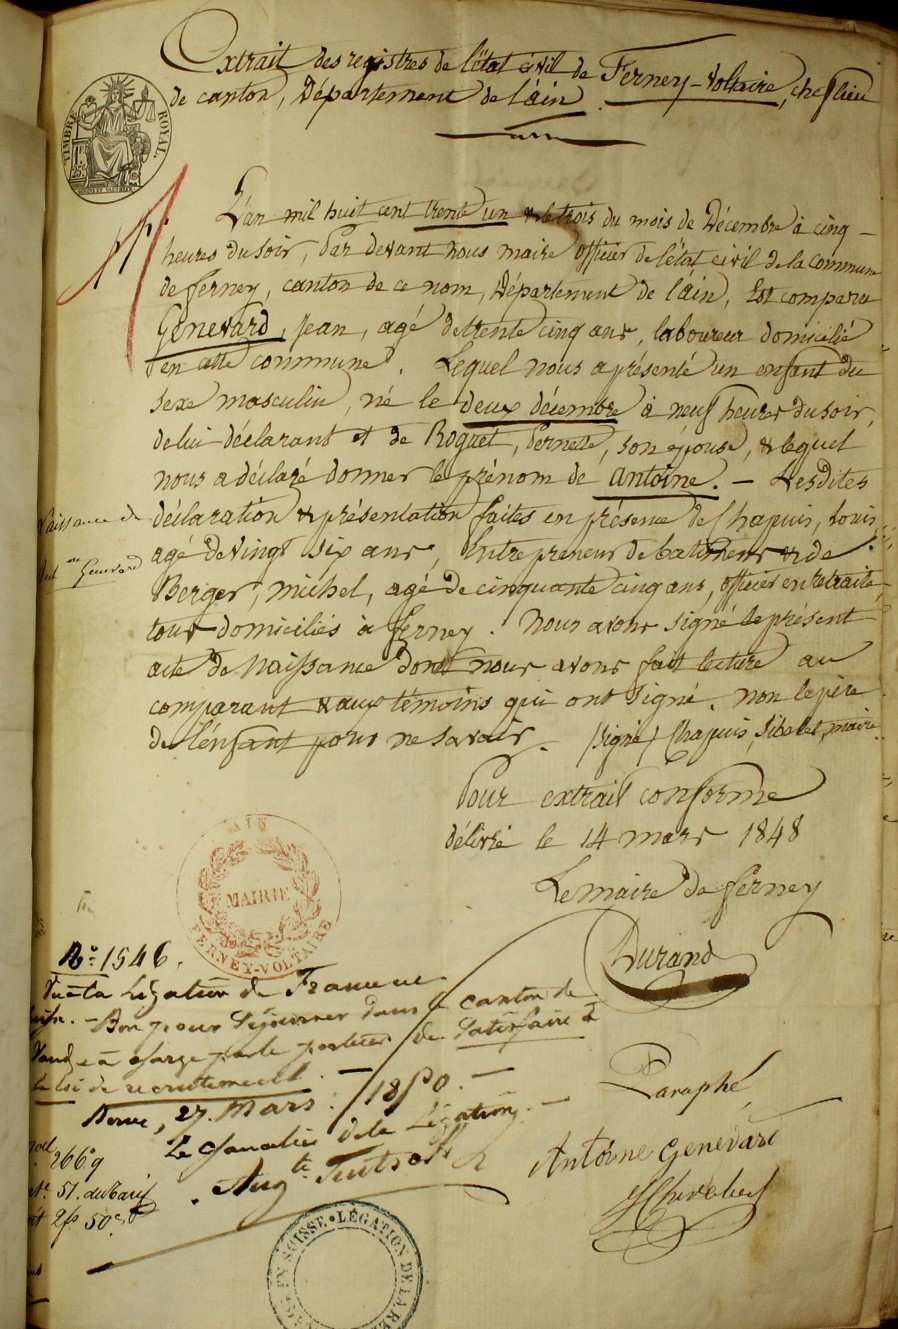 Extrait des registres de l'état civil de Ferney-Voltaire, chef lieu
de canton, Département de l'ain.
TIMBRE ROYAL
L'an mil huit cent trente un & le trois du mois de Décembre à cinq
heures du soir, Par devant nous maire officier de l'état civil de la commune
de ferney, canton de ce nom, Département de l'ain, Est comparu
Genevard, Jean, agé de trente cinq ans, laboureur domicilié
en cette commune. Lequel nous a présenté un enfant du
sexe masculin, né le deux décembre à neuf heures du soir,
de lui déclarant et de Roguet, Pernette, son épouse, & lequel
nous a déclaré donner le prénom de antoine. - Lesdites
déclaration & présentation faites en présence de Chapuis, Louis,
agé de vingt six ans, Entrepreneur de batimens & de
Berger, michel, agé de cinquante cinq ans, officier en retraite
tous domiciliés à ferney. Nous avons signé le présent
acte de Naissance dont nous avons fait lecture au
comparant & aux témoins qui ont signé, non le père
de l'enfant pour ne savoir. (signé) Chapuis, maire.
Naissance de
Genevard
Pour extrait conforme
délivré le 14 mars 1848
Le maire de ferney
Durand
MAIRIE
FERNEY-VOLTAIRE
No. 1546.
Vu à la Légation de France en
Bon pour séjourner dans le canton de
Vaud, à charge par le porteur de satisfaire à
la loi de recrutement. -
Berne, 27. Mars. 1850. -
Le Chancelier de la Légation. -
Paraphé
Antoine Genevard
266.
51. du Tarif
2f 50c
EN SUISSE • LÉGATION DE LA RE